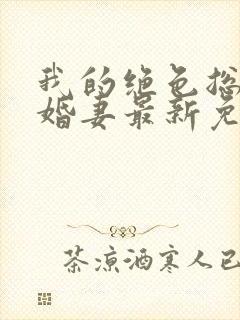 我的绝色总
婚妻最新免
茶凉酒寒人已